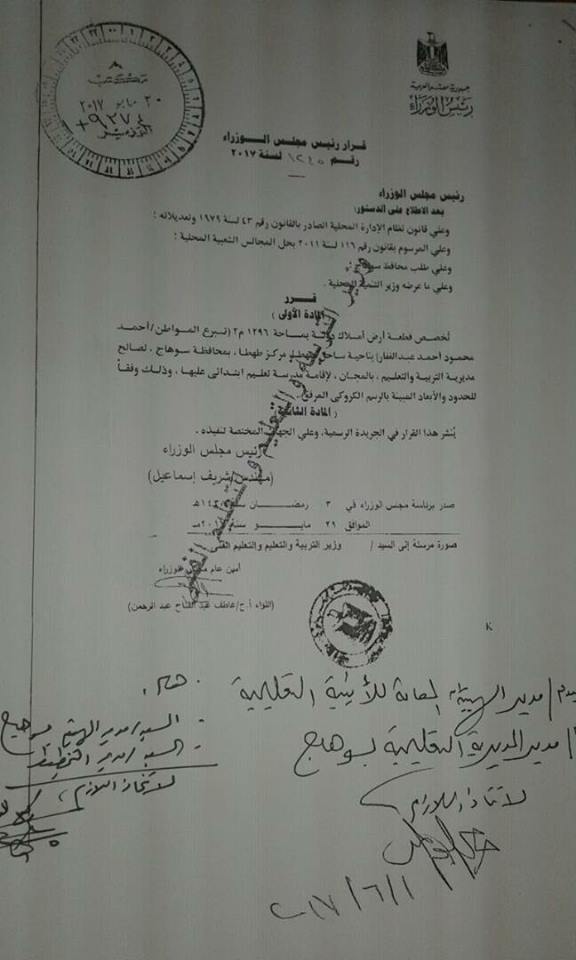 جمهورية مصر العربية
رئيس الوزراء
مكتب
٢٠ مايو ٢٠١٧
الوزير
قرار رئيس مجلس الوزراء
رقم ١٢٤٥ لسنة ٢٠١٧
رئيس مجلس الوزراء
بعد الاطلاع على الدستور؛
وعلي قانون نظام الإدارة المحلية الصادر بالقانون رقم ٤٣ لسنة ١٩٧٩ وتعديلاته ؛
وعلي المرسوم بقانون رقم ١١٦ لسنة ٢٠١١ بحل المجالس الشعبية المحلية ؛
وعلي طلب محافظ سوهاج ؛
وعلي ما عرضه وزير التنمية المحلية .
قرر
(المادة الأولى )
تُخصص قطعة أرض أملاك دولة بمساحة ١٢٩٦ م٢ (تبرع المواطن/أحمد
محمود أحمد عبدالغفار) بناحية ساحل طهطا، مركز طهطا، بمحافظة سوهاج ، لصالح
مديرية التربية والتعليم ، بالمجان ، لإقامة مدرسة تعليم ابتدائى عليها ، وذلك وفقاً
للحدود والأبعاد المبينة بالرسم الكروكى المرفق.
( المادة الثانية )
يُنشر هذا القرار في الجريدة الرسمية، وعلي الجهات المختصة تنفيذه .
رئيس مجلس الوزراء
(مهندس/شريف إسماعيل)
صدر برئاسة مجلس الوزراء في ٣ رمضان سنة هـ
الموافق ٢٩ مايو سنة م
صورة مرسلة إلى السيد / وزير التربية والتعليم والتعليم الفنى
أمين عام مجلس الوزراء
(اللواء أ.ح/عاطف عبد الفتاح عبد الرحمن)
K
مدير الهيئة العامة للأبنية التعليمية
مدير المديرية التعليمية بسوهاج
لاتخاذ اللازم
٢٠١٧/٦/١
السيد / مدير الهيئة بسوهاج
السيد / مدير التخطيط
لاتخاذ اللازم